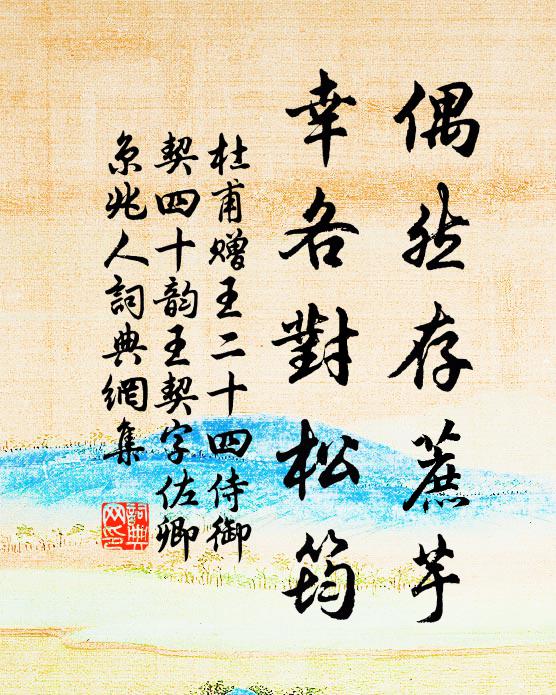 偶然存蔗芋
幸各對松筠
杜甫贈王二十四侍御
契四十韵王契字佐卿
京兆人詞典網集
詞典
网印